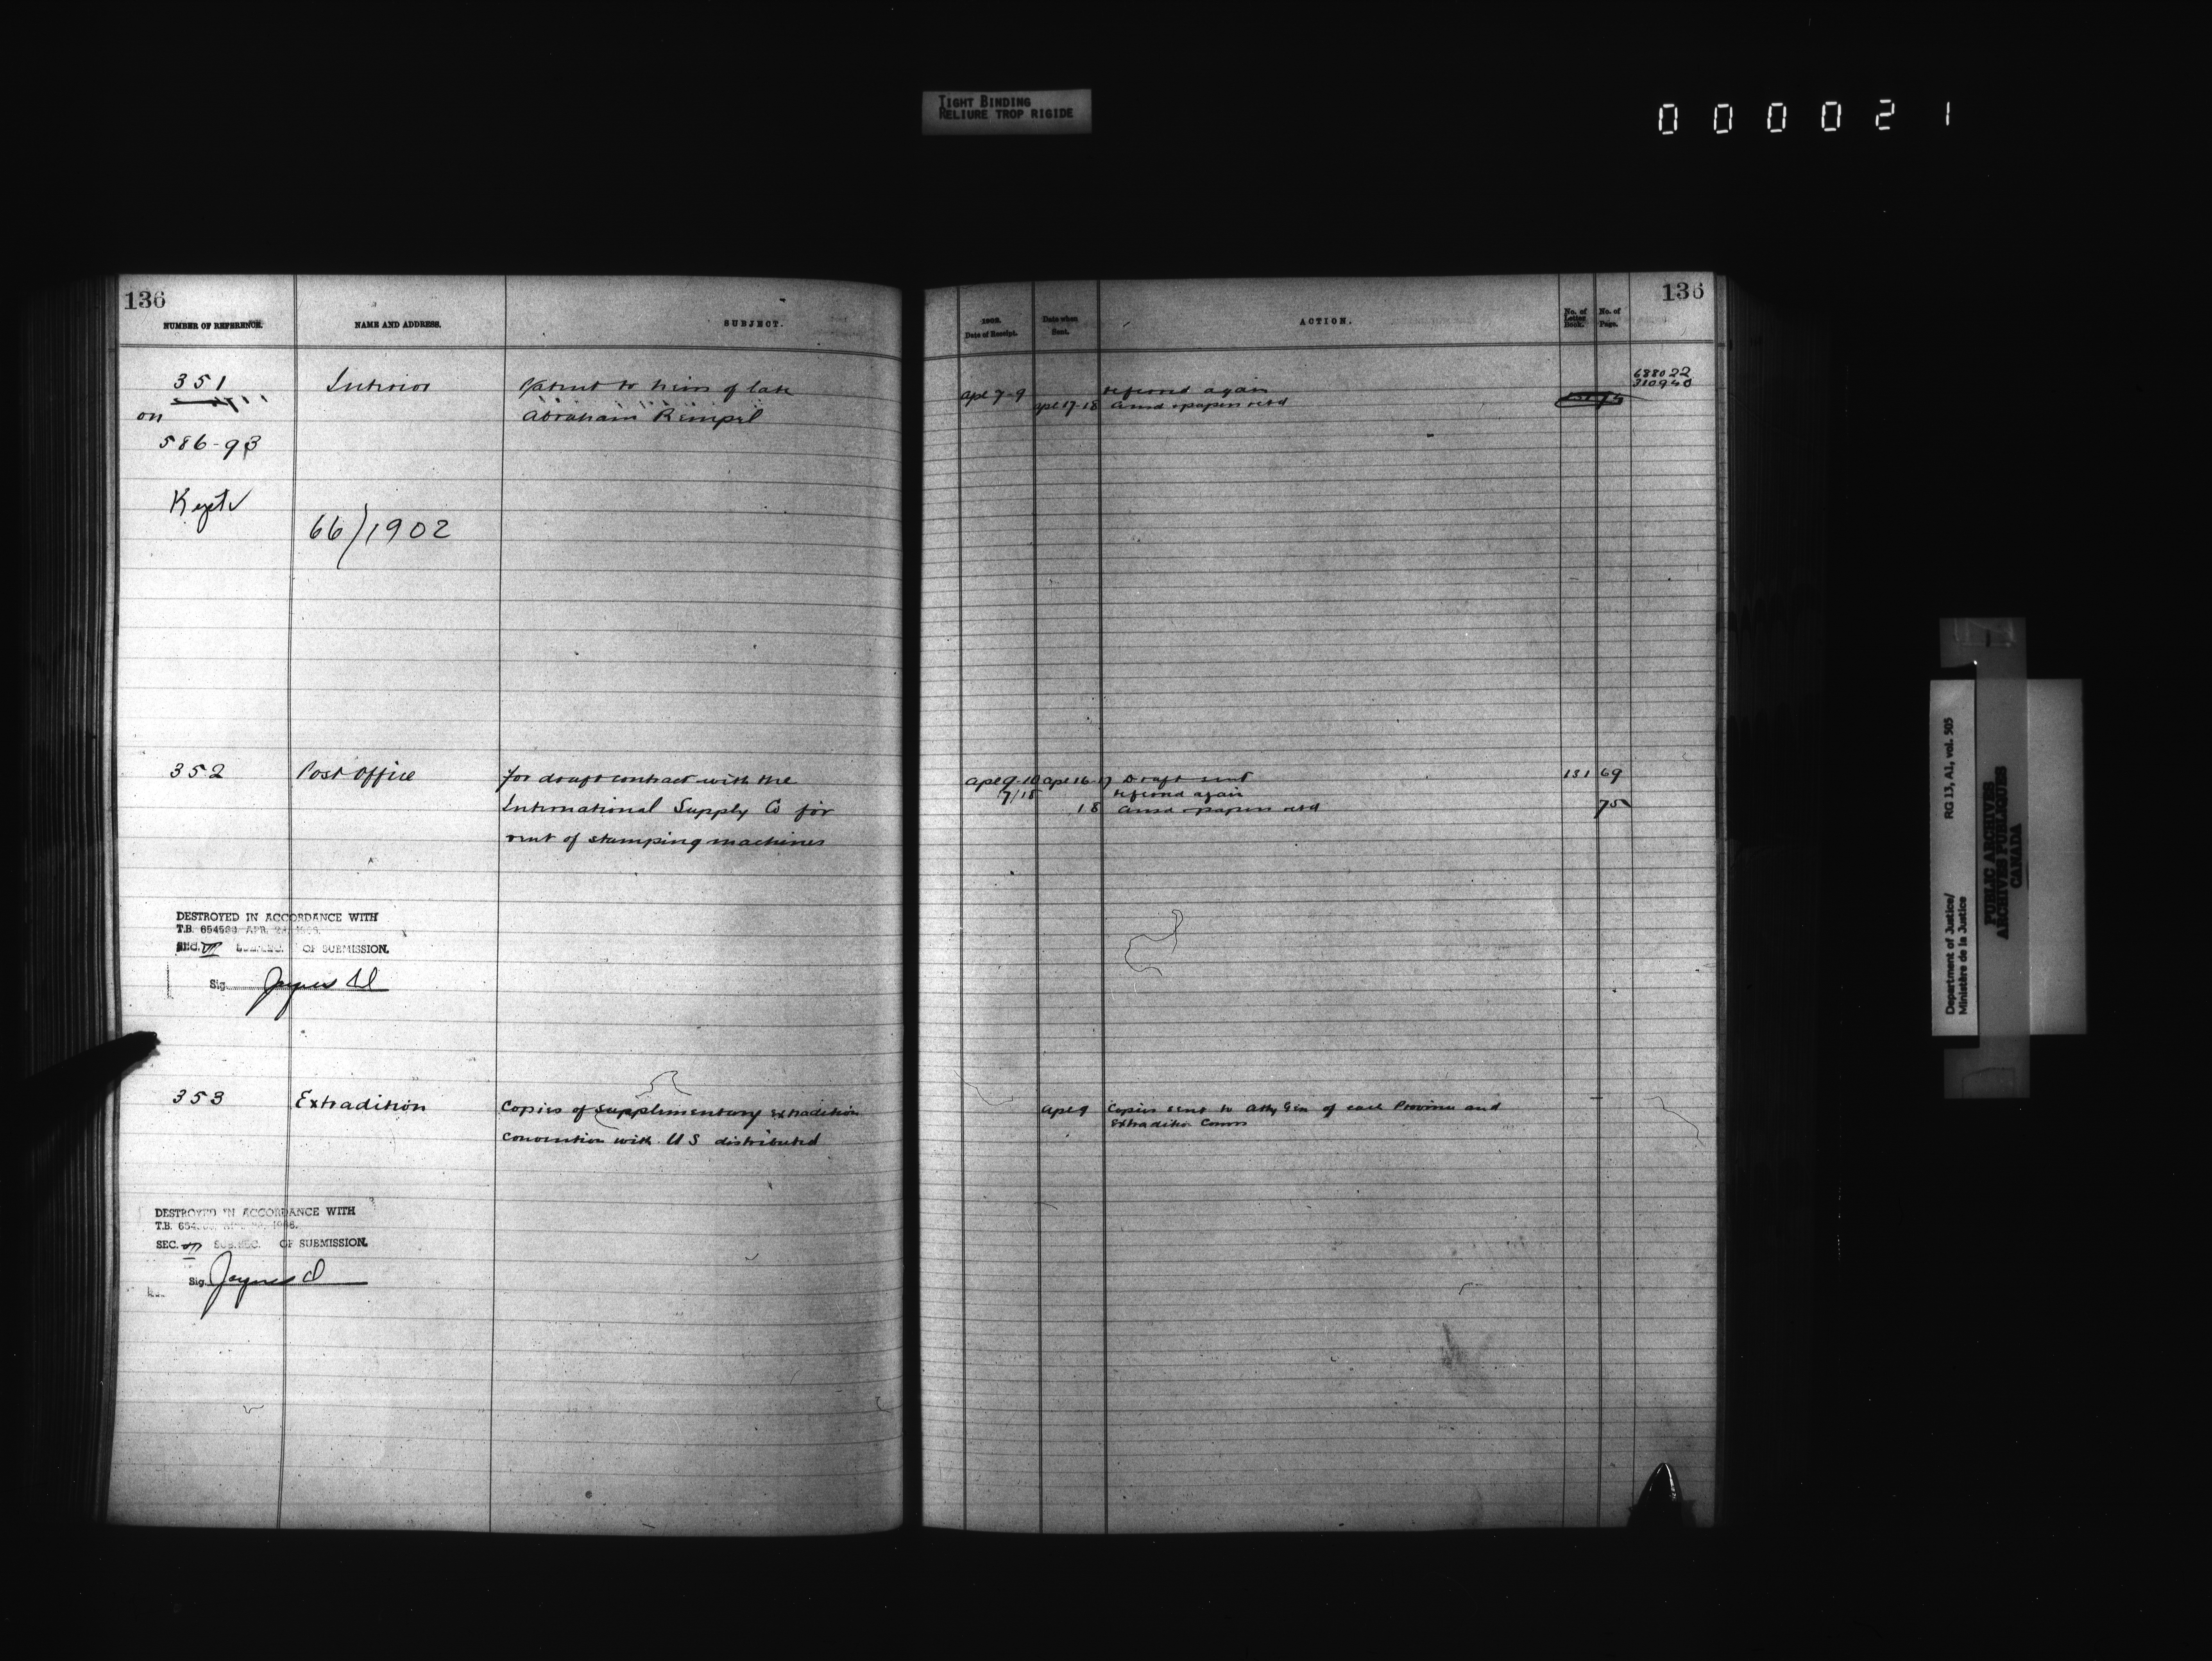 TIGHT BINDING
RELIURE TROP RIGIDE
000021
136
NUMBER OF REFERENCE.
NAME AND ADDRESS.
SUBJECT.
351
on
586-93
Kept
Interior
66/1902
Patent to heirs of late
Abraham Rempel
352
Post Office
for draft contract with the
International Supply Co for
rent of stamping machines
DESTROYED IN ACCORDANCE WITH
T.B. APR.
SEC. OF SUBMISSION.
Sig.
353
Extradition
Copies of supplimentary extradition
convention with U S distributed
DESTROYED IN ACCORDANCE WITH
T.B.
SEC. SUB.SEC. OF SUBMISSION.
Sig.
136
Date of Receipt.
Date when
Sent.
ACTION.
No. of
Letter
Book.
No. of
Page.
688022
310940
apl 7-9
referred again
apl 17-18
ansd & papers retd
apl 9-10
apl 16-17
Draft sent
131
69
17/18
referred again
18
ansd & papers retd
75
apl 9
Copies sent to Atty Gen of each Province and
Extradition Comrs
Department of Justice/
Ministère de la Justice
RG 13, A1, vol. 505
PUBLIC ARCHIVES
ARCHIVES PUBLIQUES
CANADA